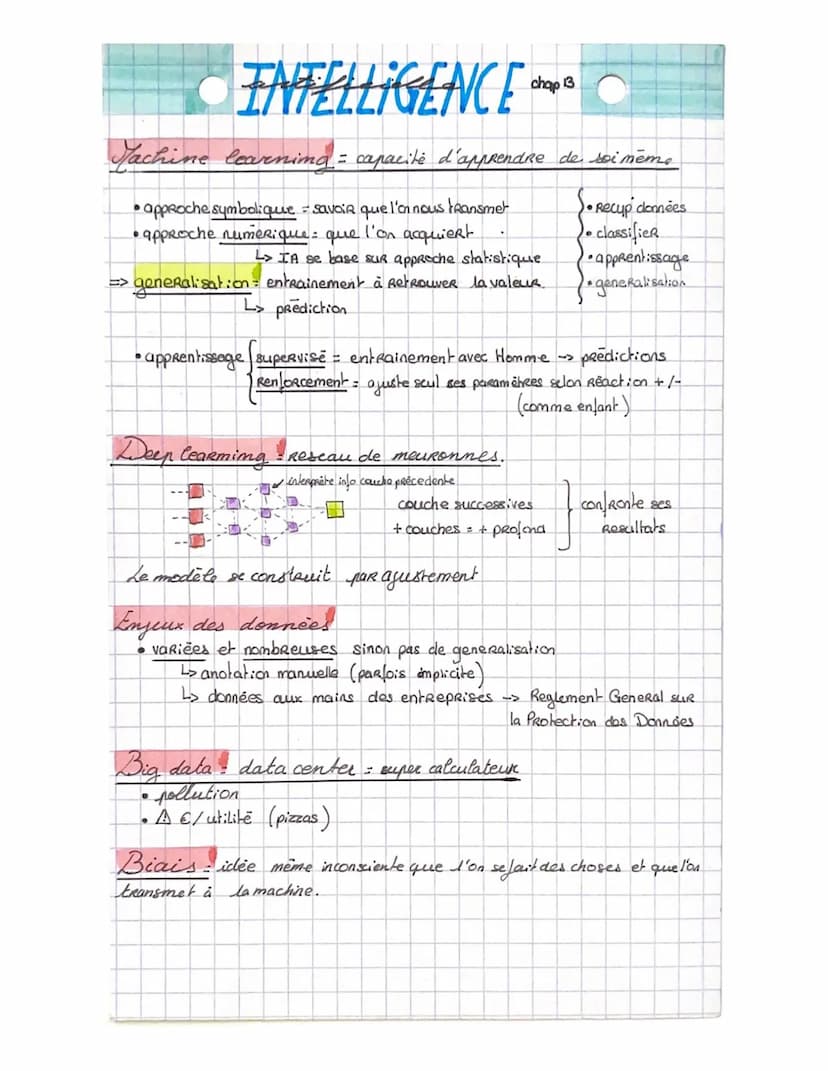 INTELLiGENCE chap 13
artificielle
Machine learning = capacité d'apprendre de soi même
• approche symbolique = savoir que l'on nous transmet
• approche numérique = que l'on acquiert
↳ IA se base sur approche statistique
=> generalisation = entrainement à retrouver la valeur
↳ prédiction
• recup' données
• classifier
• apprentissage
• generalisation
• apprentissage supervisé = entrainement avec Homme -> prédictions
renforcement = ajuste seul ses paramètres selon réaction +/-
(comme enfant)
Deep learning = reseau de neuronnes.
interprète info couche précedente
couche successives
+ couches = + profond
confronte ses
resultats
Le modèle se construit par ajustement
Enjeux des données
• variées et nombreuses sinon pas de generalisation
↳ anotation manuelle (parfois implicite)
↳ données aux mains des entreprises -> Reglement General sur
la Protection des Données
Big data = data center = super calculateur
• pollution
• ⚠ €/utilité (pizzas)
Biais = idée même inconsciente que l'on se fait des choses et que l'on
transmet à la machine.